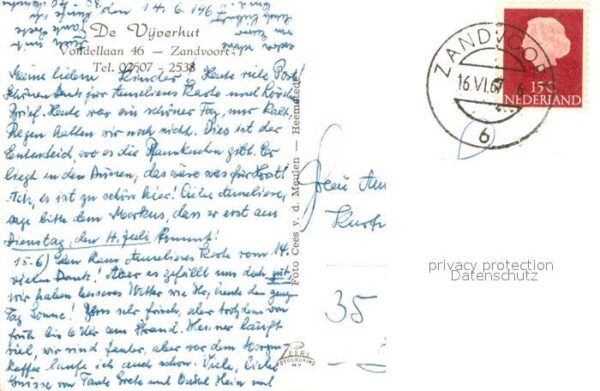 den 14.6.1967
De Vijverhut
Vondellaan 46 — Zandvoort
Tel. 02507 - 2538
Meine lieben Kinder! Heute viele Post!
Schönen Dank für Annelieses Karte und
Brief. Heute war ein schöner Tag, nur kalt,
Regen hatten wir noch nicht. Dies ist der
wo es die Pfannkuchen gibt. Er
liegt in den Dünen, das wäre was für Horst!
Ach, es ist zu schön hier! Liebe Anneliese,
sage bitte dem Markus, dass er erst am
Dienstag, den 4. Juli kommt!
15.6) Eben kam Annelieses Karte vom 14.
vielen Dank! Aber es gefällt uns doch gut,
wir haben besseres Wetter wie Ihr, heute den ganzen
Tag Sonne! sehr frisch, aber trotzdem von
früh bis 6 Uhr am Strand. Heiner läuft
viel, wir sind fauler, aber vor dem Morgen-
kaffee laufe ich auch schon. Viele, liebe
Grüsse von Tante Grete und Onkel Hein und
Foto Cees v. d. Meulen — Heemstede
ZANDVOORT
16.VI.67
6
15 C
NEDERLAND
Frau
35
privacy protection
Datenschutz